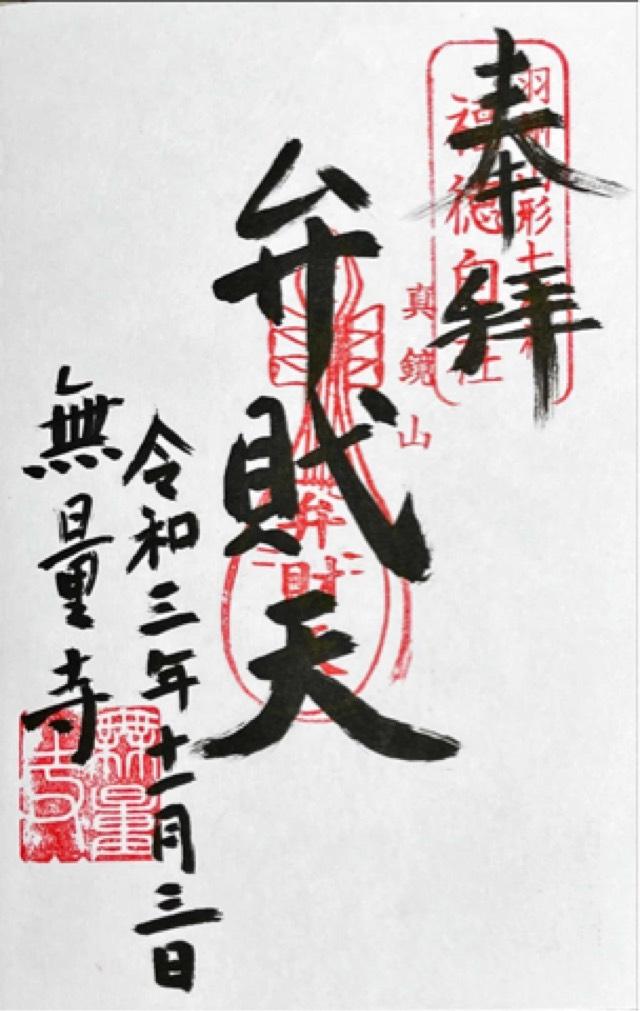 奉拝
福徳
真鏡山
弁財天
弁財天
令和三年十一月三日
無量寺
無量
寺